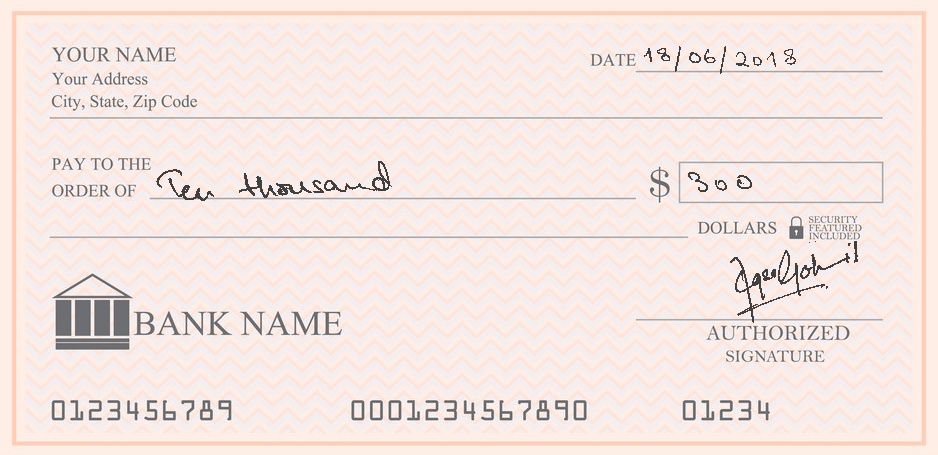 YOUR NAME
Your Address
City, State, Zip Code
DATE 18/06/2018
PAY TO THE
ORDER OF Ten thousand $ 300
DOLLARS SECURITY FEATURED INCLUDED
BANK NAME
AUTHORIZED
SIGNATURE
0123456789 0001234567890 01234